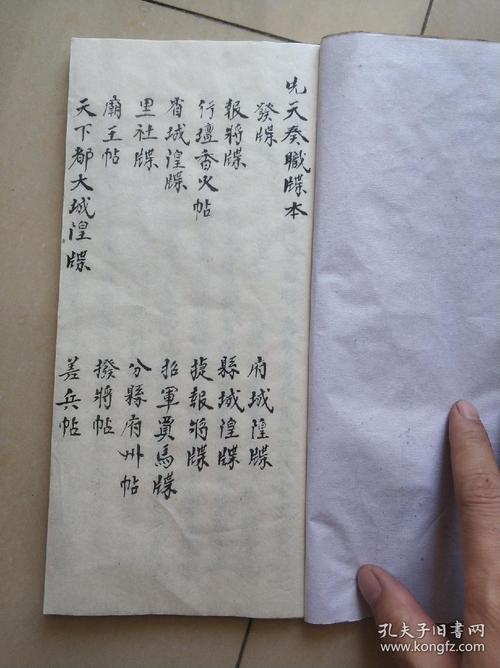 先天奏職牒本
發牒
報將牒
行壇香火帖
省城湟牒
里社牒
廟王帖
天下都大城湟牒
府城隍牒
縣城隍牒
捷報將牒
招軍買馬牒
分縣府州帖
撥將帖
差兵帖
孔夫子旧书网
www.kongfz.com